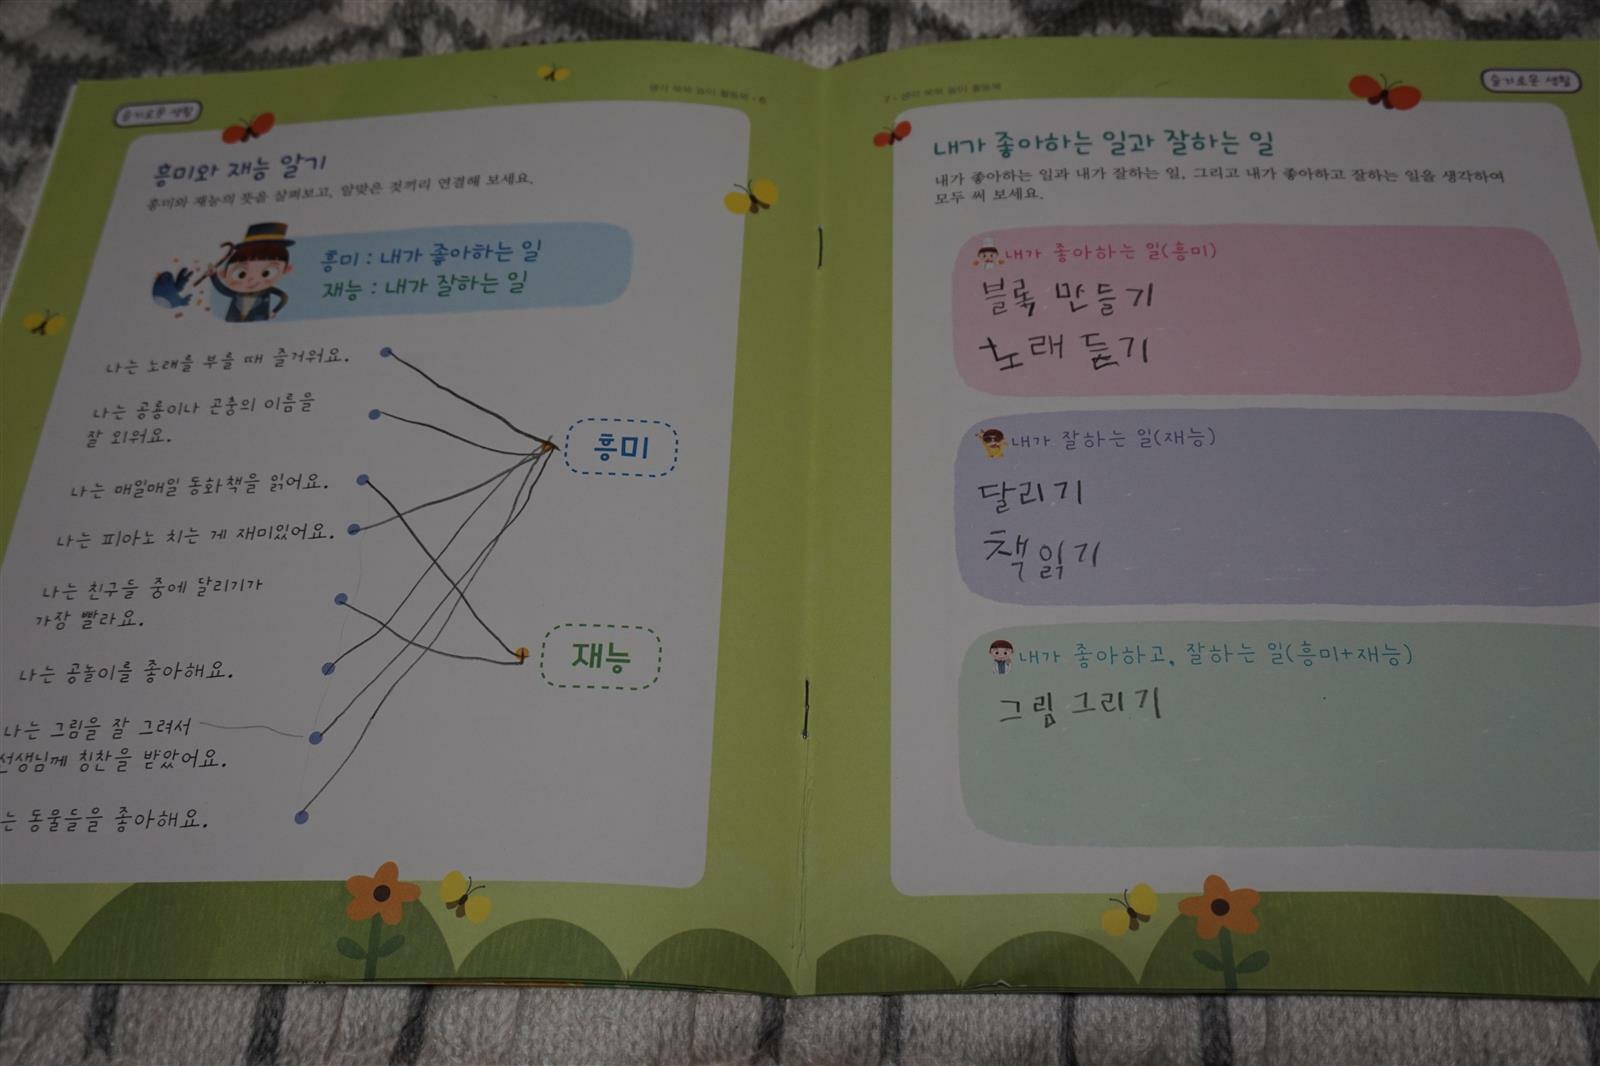 슬기로운 생활
생각 쑥쑥 놀이 활동북 · 6
흥미와 재능 알기
흥미와 재능의 뜻을 살펴보고, 알맞은 것끼리 연결해 보세요.
흥미 : 내가 좋아하는 일
재능 : 내가 잘하는 일
나는 노래를 부를 때 즐거워요.
나는 공룡이나 곤충의 이름을
잘 외워요.
나는 매일매일 동화책을 읽어요.
나는 피아노 치는 게 재미있어요.
나는 친구들 중에 달리기가
가장 빨라요.
나는 공놀이를 좋아해요.
나는 그림을 잘 그려서
선생님께 칭찬을 받았어요.
는 동물들을 좋아해요.
흥미
재능
7 · 생각 쑥쑥 놀이 활동북
슬기로운 생활
내가 좋아하는 일과 잘하는 일
내가 좋아하는 일과 내가 잘하는 일, 그리고 내가 좋아하고 잘하는 일을 생각하여
모두 써 보세요.
내가 좋아하는 일(흥미)
블록 만들기
노래 듣기
내가 잘하는 일(재능)
달리기
책 읽기
내가 좋아하고, 잘하는 일(흥미+재능)
그림 그리기